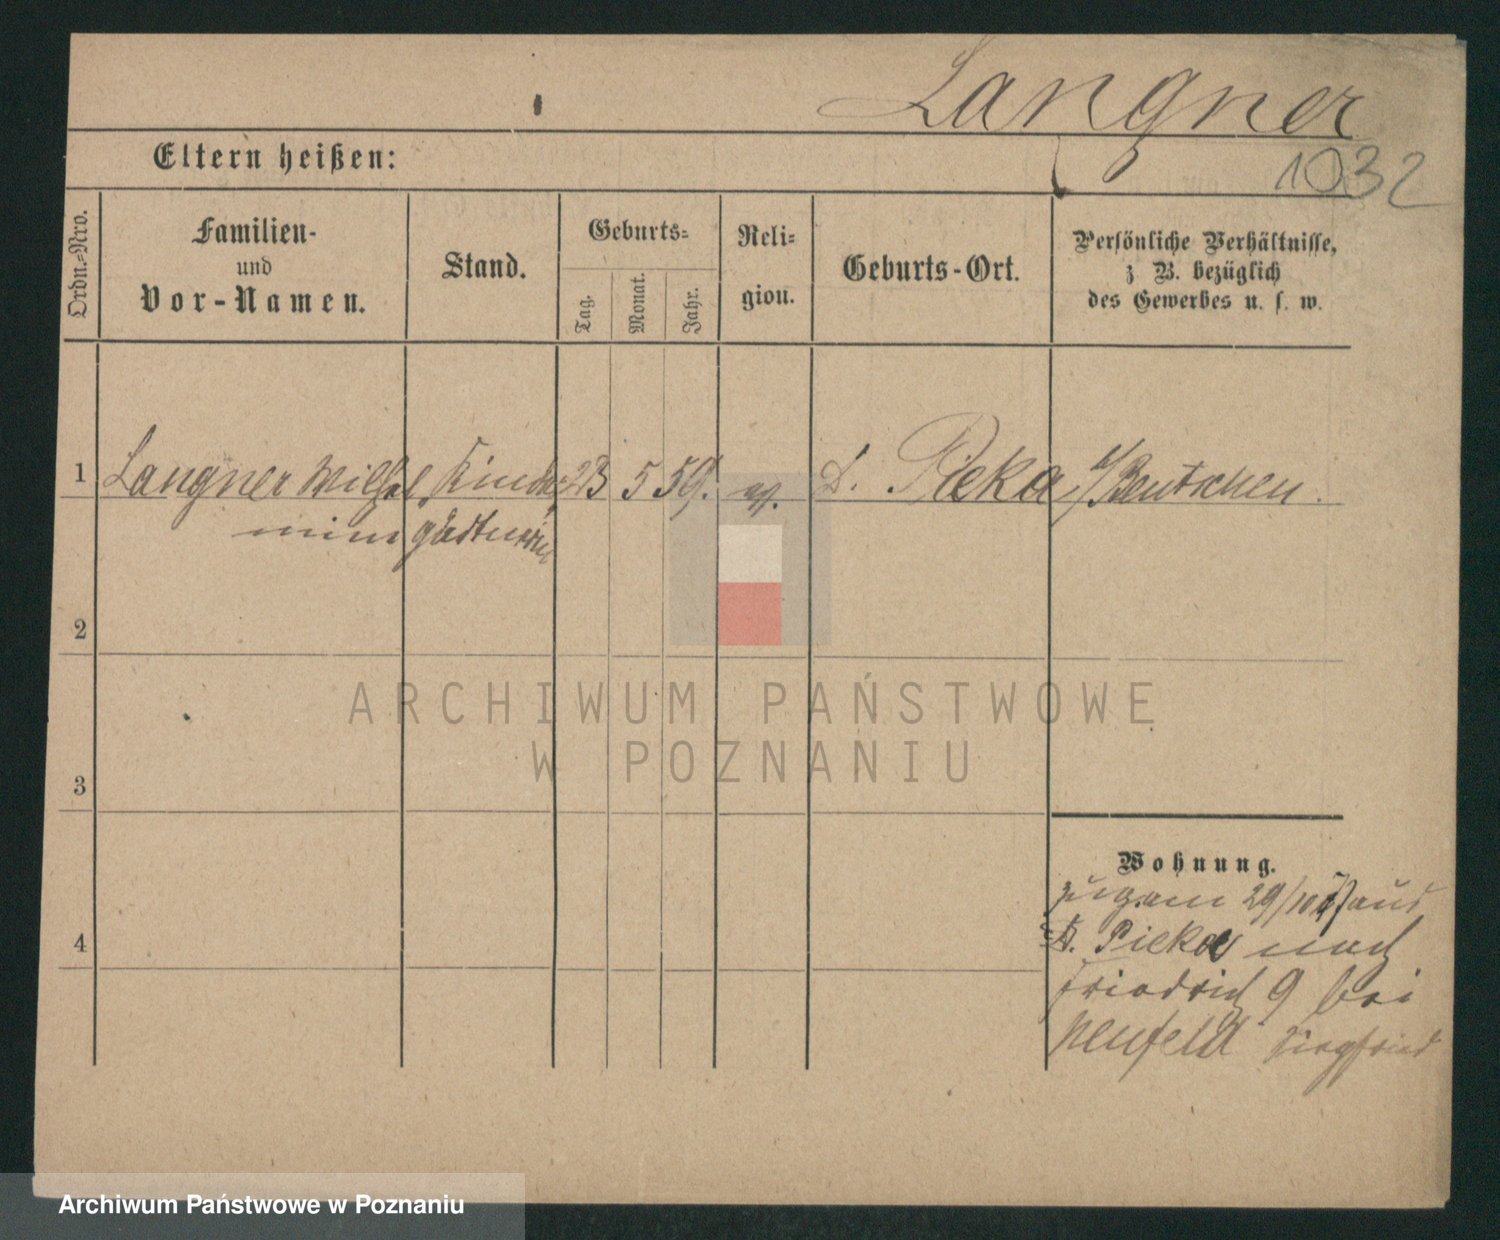 Langner
1032
Eltern heißen:
Ordn.-Nro.
Familien-
und
Vor-Namen.
Stand.
Geburts-
Tag.
Monat.
Jahr.
Reli-
gion.
Geburts-Ort.
Persönliche Verhältnisse,
z B. bezüglich
des Gewerbes u. s. w.
1 Langner Wilhel Kinder 23 5 59. ev. D. Pieka b/Bentschen.
mine gärtnerin
2
ARCHIWUM PAŃSTWOWE
W POZNANIU
3
Wohnung.
zug. am 29/10 aus
4 D. Pieka nach
Friedrich 9 bei
Neufeld Siegfried
Archiwum Państwowe w Poznaniu